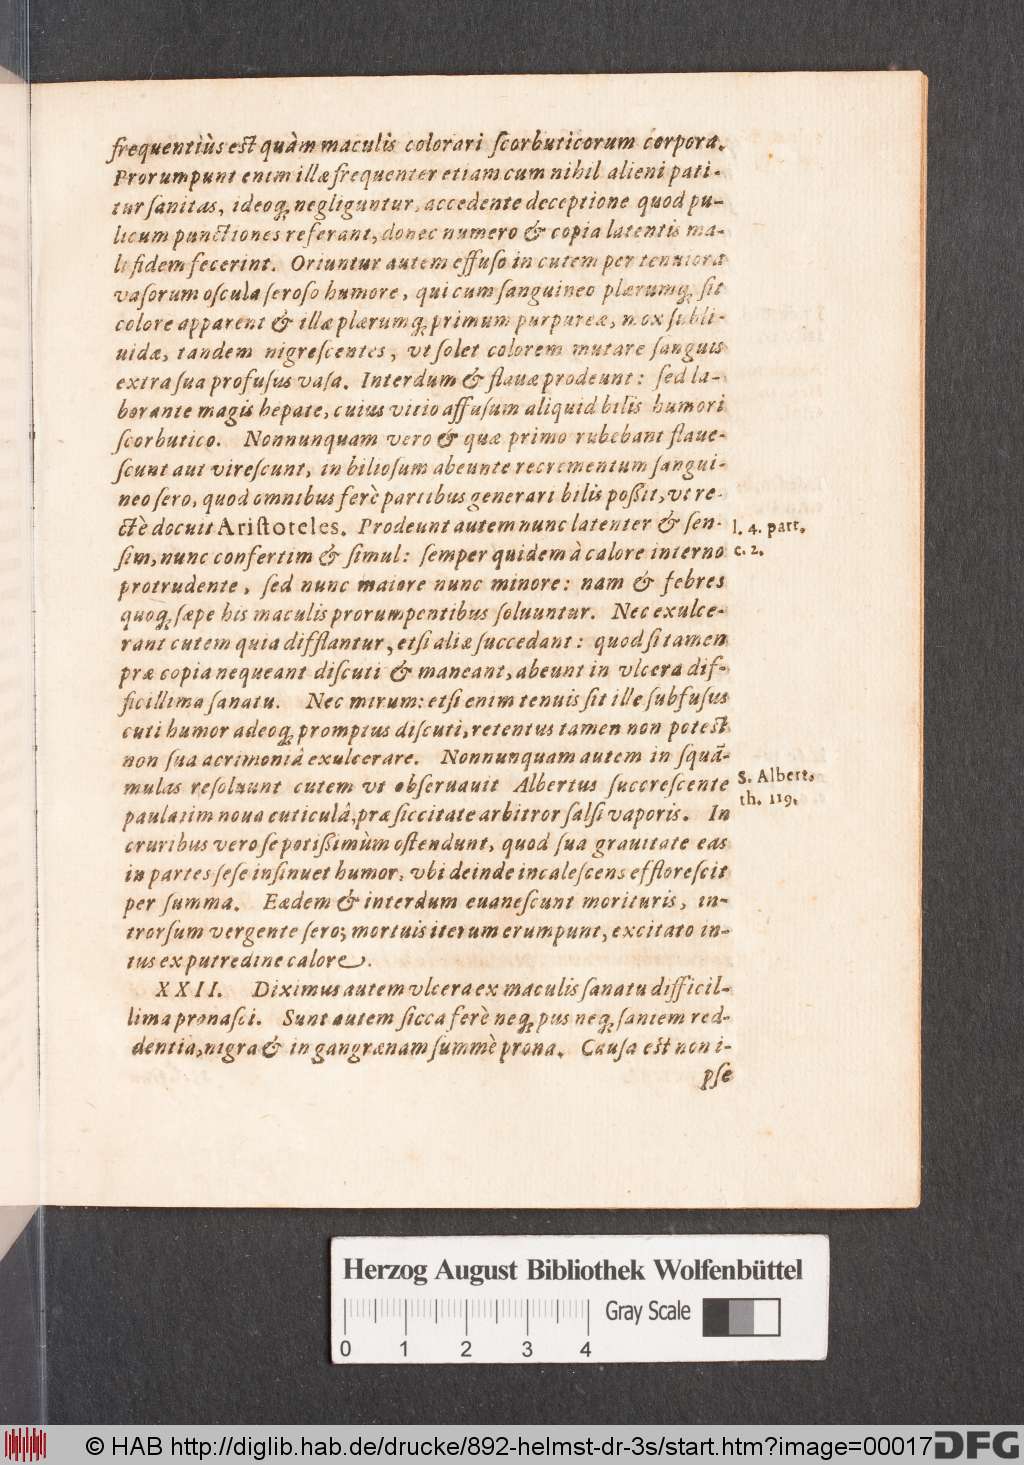 frequentiùs est quàm maculis colorari ſcorbuticorum corpora.
Prorumpunt enim illæ frequenter etiam cum nihil alieni pati-
tur ſanitas, ideoq; negliguntur, accedente deceptione quod pu-
licum punctiones referant, donec numero & copia latentis ma-
li fidem fecerint. Oriuntur autem effuſo in cutem per tenuiora
vaſorum oſcula ſeroſo humore, qui cum ſanguineo plærumq; ſit
colore apparent & illæ plærumq; primum purpureæ, mox ſubli-
uidæ, tandem nigreſcentes, vt ſolet colorem mutare ſanguis
extra ſua profuſus vaſa. Interdum & flauæ prodeunt: ſed la-
borante magis hepate, cuius vitio affuſum aliquid bilis humori
ſcorbutico. Nonnunquam vero & quæ primo rubebant flaue-
ſcunt aut vireſcunt, in bilioſum abeunte recrementum ſangui-
neo ſero, quod omnibus ferè partibus generari bilis poßit, vt re-
ctè docuit Ariſtoteles. Prodeunt autem nunc latenter & ſen-
l. 4. part.
ſim, nunc confertim & ſimul: ſemper quidem à calore interno
c. 2.
protrudente, ſed nunc maiore nunc minore: nam & febres
quoq; ſæpe his maculis prorumpentibus ſoluuntur. Nec exulce-
rant cutem quia difflantur, etſi aliæ ſuccedant: quod ſi tamen
præ copia nequeant diſcuti & maneant, abeunt in vlcera dif-
ficillima ſanatu. Nec mirum: etſi enim tenuis ſit ille ſubfuſus
cuti humor adeoq; promptus diſcuti, retentus tamen non poteſt
non ſua acrimoniâ exulcerare. Nonnunquam autem in ſquā-
mulas reſoluunt cutem vt obſeruauit Albertus ſuccreſcente
S. Albert.
paulatim noua cuticulâ, præ ſiccitate arbitror ſalſi vaporis. In
th. 119.
cruribus vero ſe potißimùm oſtendunt, quod ſua grauitate eas
in partes ſeſe inſinuet humor, vbi deinde incaleſcens effloreſcit
per ſumma. Eædem & interdum euaneſcunt morituris, in-
trorſum vergente ſero; mortuis iterum erumpunt, excitato in-
tus ex putredine calore.
XXII. Diximus autem vlcera ex maculis ſanatu difficil-
lima pronaſci. Sunt autem ſicca ferè neq; pus neq; ſaniem red-
dentia, nigra & in gangrænam ſummè prona. Cauſa eſt non i-
pſe
Herzog August Bibliothek Wolfenbüttel
Gray Scale
0 1 2 3 4
© HAB http://diglib.hab.de/drucke/892-helmst-dr-3s/start.htm?image=00017
DFG